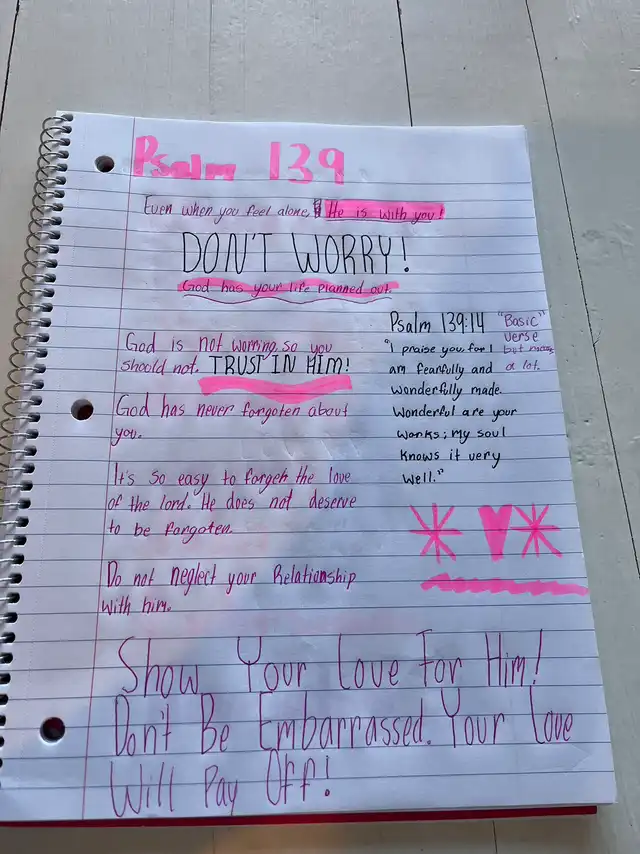 Psalm 139
Even when you feel alone, He is with you!
DON'T WORRY!
God has your life planned out.
God is not worring, so you
should not. TRUST IN HIM!
God has never forgoten about
you.
It's so easy to forget the love
of the lord. He does not deserve
to be forgoten.
Do not neglect your Relationship
with him.
Psalm 139:14
"I praise you, for I
am fearfully and
wonderfully made.
Wonderful are your
works; my soul
knows it very
well."
"Basic"
verse
but means
a lot.
Show Your Love For Him!
Don't Be Embarrassed. Your Love
Will Pay Off!